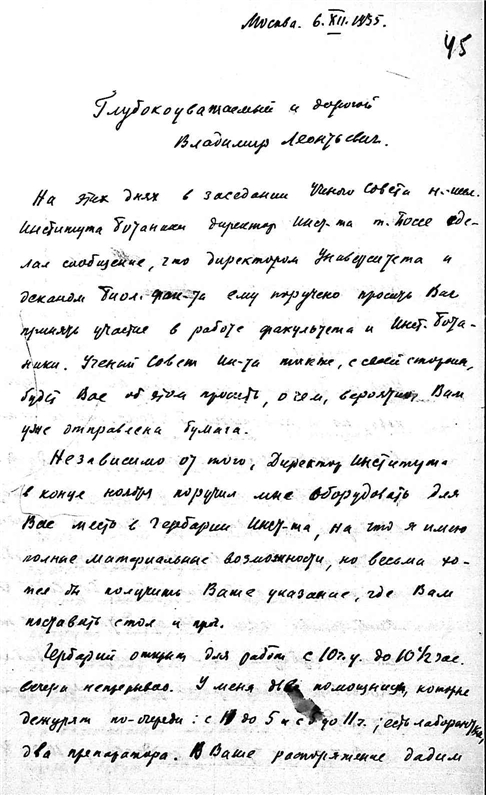 Москва. 6.XII.1935.
45
Глубокоуважаемый и дорогой
Владимир Леонтьевич.
На этих днях в заседании Ученого Совета н.-иссл.
Института ботаники директор Инст-та т. Поссе сде-
лал сообщение, что директором Университета и
деканом биол. фак-та ему поручено просить Вас
принять участие в работе факультета и Инст. бота-
ники. Ученый Совет Ин-та также, с своей стороны,
будет Вас об этом просить, о чем, вероятно, Вам
уже отправлена бумага.
Независимо от того, Директор Института
в конце ноября поручил мне оборудовать для
Вас место в Гербарии Инст-та, на что я имею
полные материальные возможности, но весьма хо-
тел бы получить Ваше указание, где Вам
поставить стол и пр.
Гербарий открыт для работ с 10 г. у. до 10 1/2 час.
вечера непрерывно. У меня два помощника, которые
дежурят по-очереди: с до 5 и с до 11 г.; есть лаборантка,
два препаратора. В Ваше распоряжение дадим